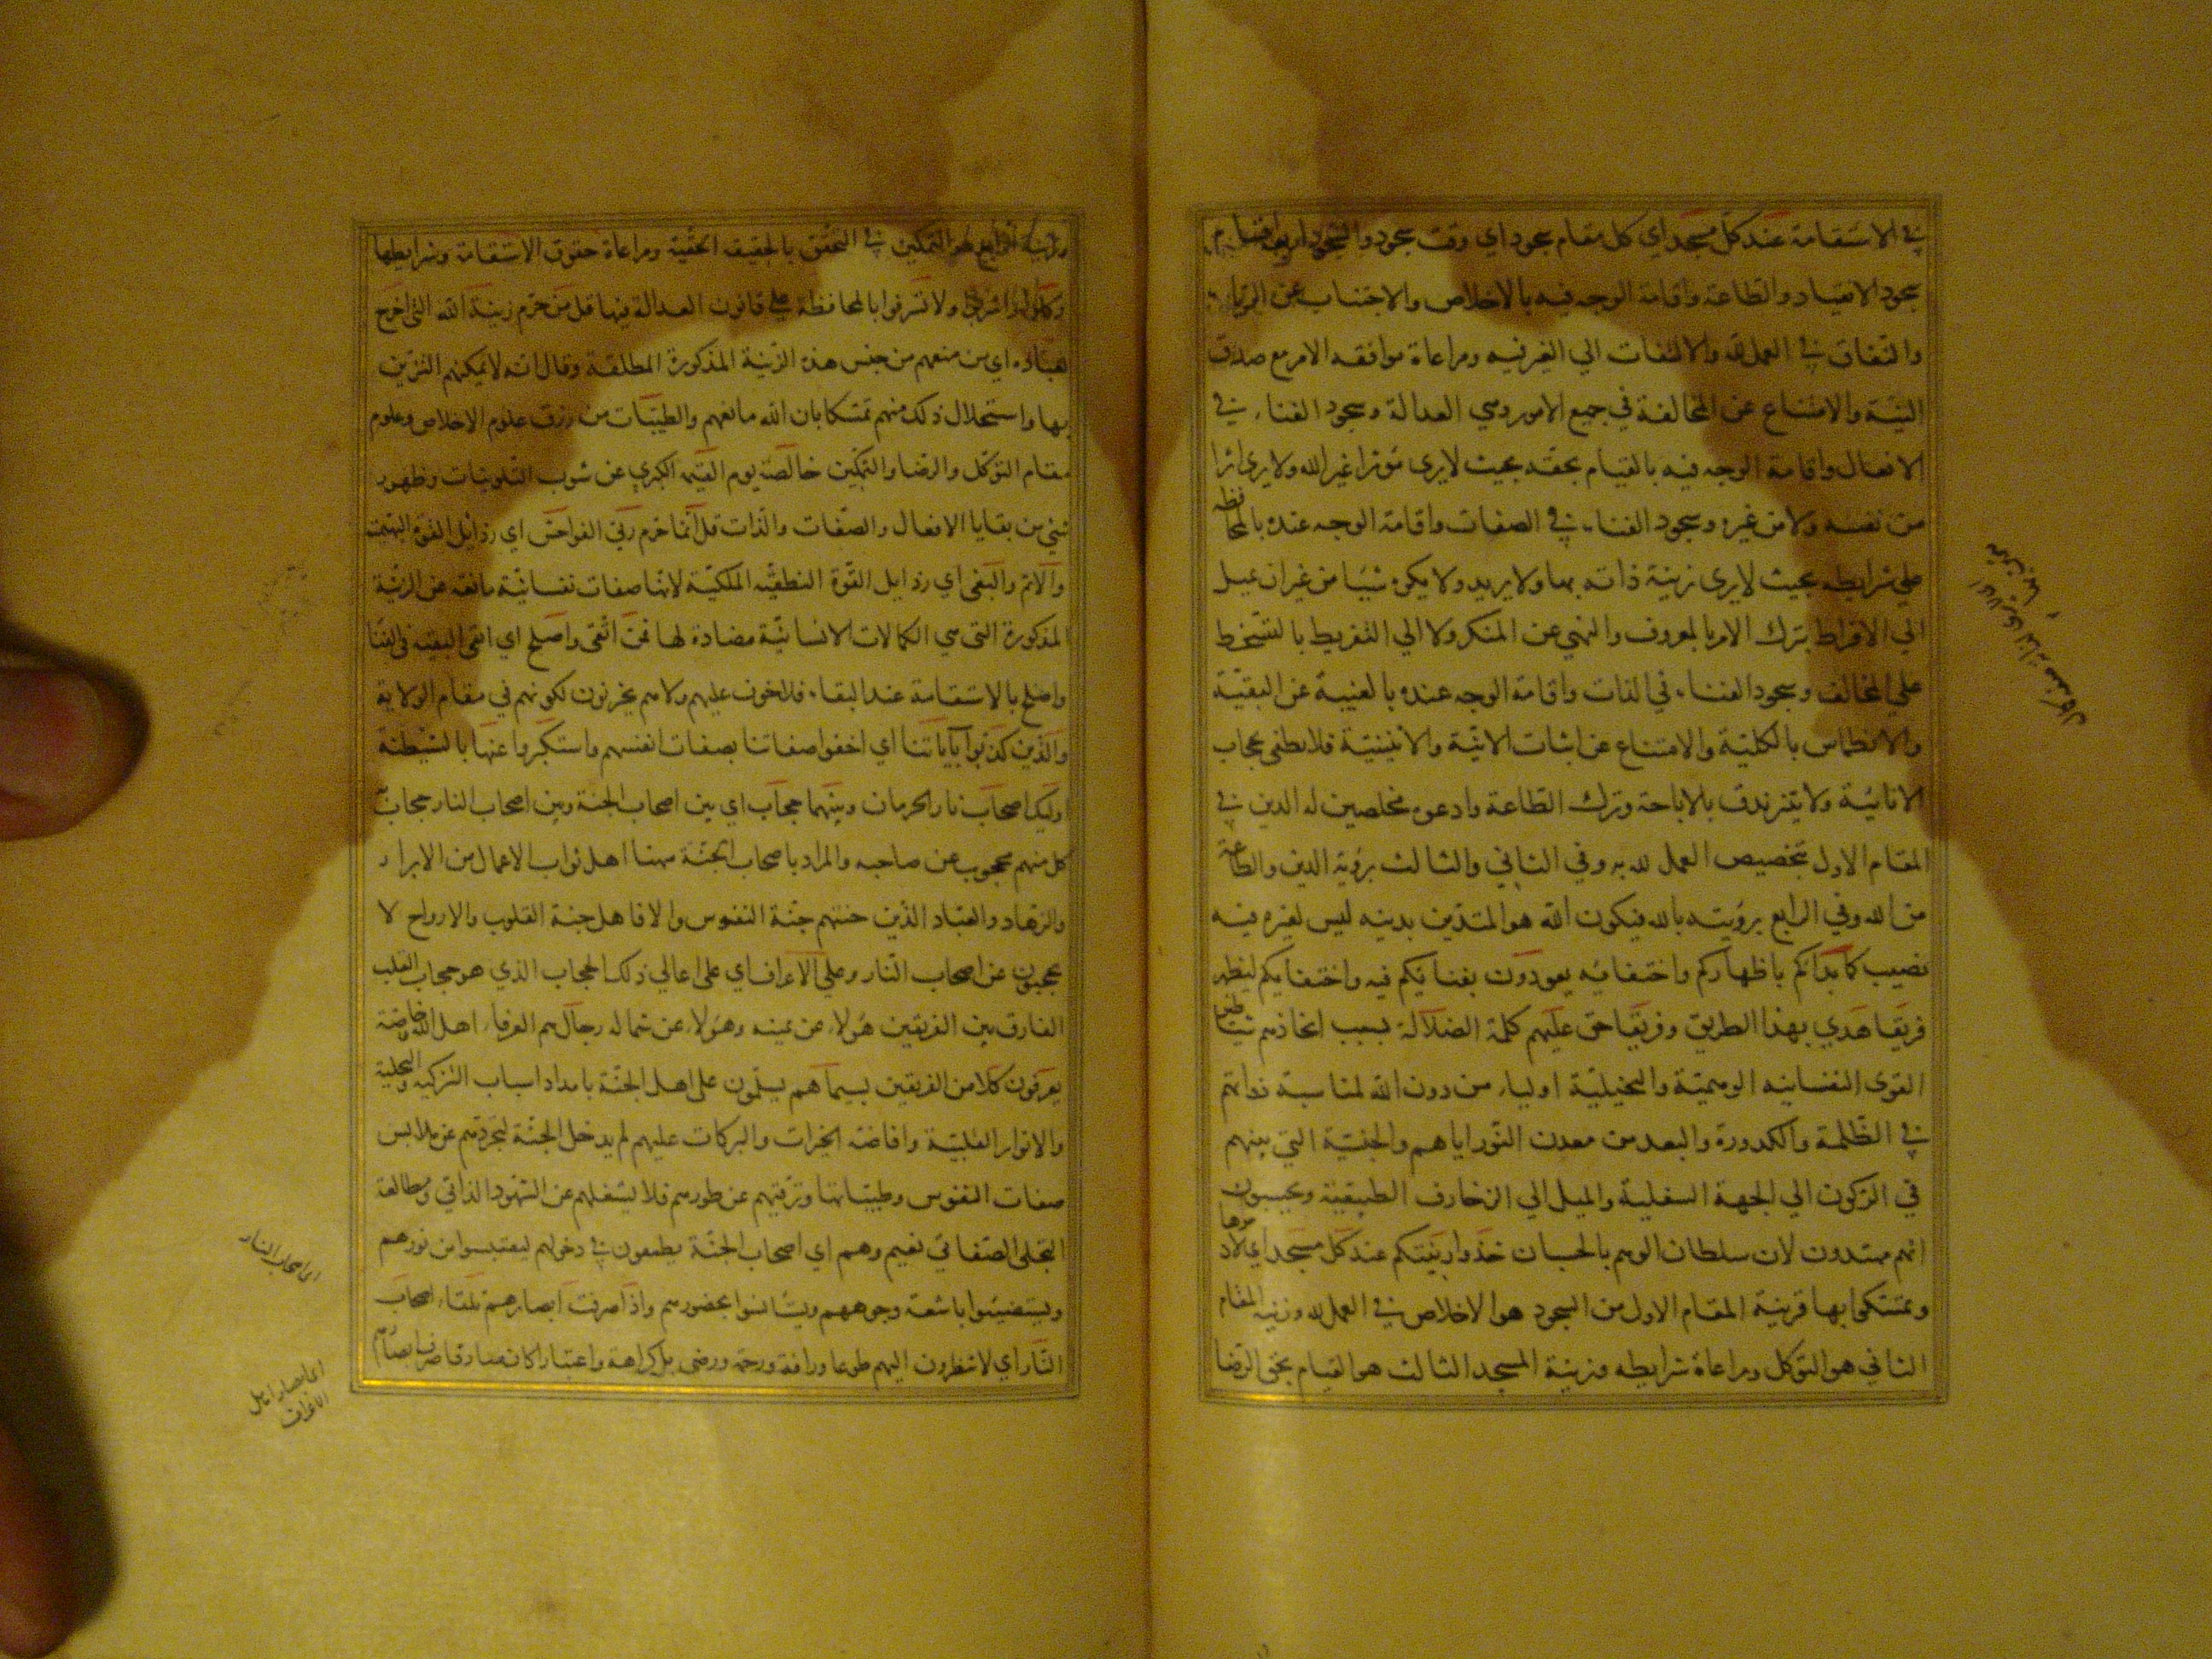 في الاستقامة عند كل مسجد اي كل مقام سجود اي وقت سجود والسجود اربعة اقسام
سجود الانقياد والطاعة واقامة الوجه فيه بالاخلاص والاجتناب عن الريا
والنفاق في العمل لله والالتفات الي الغير فيه ومراعاة موافقه الامر مع صدق
النية والامتناع عن المخالفة في جميع الامور وهي العدالة وسجود الفناء في
الافعال واقامة الوجه فيه بالقيام بحقه بحيث لايري موثرا غير الله ولا يري اثرا
من نفسه ولا من غيره وسجود الفناء في الصفات واقامة الوجه عنده بالمحافظه
علي شرايطه بحيث لايري زينة ذاته بها ولا يريد ولا يكره شيئا من غير ان يميل
الي الافراط بترك الامر بالمعروف والنهي عن المنكر ولا الي التفريط بالتسخط
علي المخالف وسجود الفناء في الذات واقامة الوجه عنده بالغيبة عن البقية
والانطماس بالكلية والامتناع عن اثبات الانية والاثنينية فلا يطغي بحجاب
الانائية ولا يتزندق بالاباحة وترك الطاعة وادعوه مخلصين له الدين في
المقام الاول بتخصيص العمل لله به وفي الثاني والثالث برؤية الدين والطاعة
من الله وفي الرابع برؤيته بالله فيكون الله هو المتدين بدينه ليس لغيره فيه
نصيب كما بدأكم باظهاركم واختفائه يعودون بفنائكم فيه واختفايكم ليظهر
فريقا هدي بهذا الطريق وفريقا حق عليهم كلمة الضلالة بسبب اتخاذهم شياطين
القوي النفسانيه الوهمية والتخيلية اولياء من دون الله لمناسبة ذواتهم
في الظلمة والكدورة والبعد من معدن النور اياهم والجنسية التي بينهم
في الركون الي الجهة السفلية والميل الي الزخارف الطبيعية ويحسبون
انهم مهتدون لان سلطان الوهم بالحسبان خذوا زينتكم عند كل مسجد اي
وتمسكوا بها فزينة المقام الاول من السجود هو الاخلاص في العمل لله وزينه المقام
الثاني هو التوكل ومراعاة شرايطه وزينة المسجد الثالث هو القيام بحق الرضا
وزينة الرابع هو التمكين في التحقق بالحقيقة الحقية ومراعاة حقوق الاستقامة وشرايطها
وكلوا واشربوا ولا تسرفوا بالمحافظة علي قانون العدالة فيها قل من حرم زينة الله التي اخرج
لعباده اي من منعهم من جنس هذه الزينة المذكورة المطلقة وقال انه لا يمكنهم التزين
بها واستحلال ذلك منهم تمسكا بان الله مانعهم والطيبات من رزق علوم الاخلاص وعلوم
مقام التوكل والرضا والتمكين خالصة يوم القيمه الكبري عن شوب التلوينات وظهور
شيء من بقايا الافعال والصفات والذات قل انما حرم ربي الفواحش اي رذايل القوة البهيمية
والاثم والبغي اي رذايل القوة النطقيه الملكية لانها صفات نفسانية مانعه عن الزينة
المذكورة التي هي الكمالات الانسانية مضادة لها فمن اتقي واصلح اي اتقي البقيه في الفنا
واصلح بالاستقامة عند البقاء فلا خوف عليهم ولا هم يحزنون لكونهم في مقام الولاية
والذين كذبوا بآياتنا اي اخفوا صفاتنا بصفات انفسهم واستكبروا عنها بالشيطنة
اولئك اصحاب نار الحرمان وبينهما حجاب اي بين اصحاب الجنة وبين اصحاب النار حجاب به
كل منهم محجوب عن صاحبه والمراد باصحاب الجنة ههنا اهل ثواب الاعمال من الابرار
والزهاد والعباد الذين جنتهم جنة النفوس والا فاهل جنة القلوب والارواح لا
يحجبون عن اصحاب النار وعلي الاعراف اي علي اعالي ذلك الحجاب الذي هو حجاب القلب
الفارق بين الفريقين هؤلاء عن يمينه وهؤلاء عن شماله رجال هم العرفاء اهل الله وخاصته
يعرفون كلا من الفريقين بسيماهم يسلمون علي اهل الجنة بامداد اسباب التزكيه والتحلية
والانوار القلبية وافاضة الخيرات والبركات عليهم لم يدخل الجنة لتجردهم عن ملابس
صفات النفوس وطيباتها وترقيهم عن طورهم فلا يشغلهم عن الشهود الذاتي ومطالعة
التجلي الصفاتي نعيم وهم اي اصحاب الجنة يطمعون في دخولهم ليقتبسوا من نورهم
ويستضيئوا باشعة وجوههم ويستانسوا بحضورهم واذا صرفت ابصارهم تلقاء اصحاب
النار اي لا ينظرون اليهم طوعا ورافة ورحمة ورضي بل كراهة واعتبارا كان صارفا صرف ابصارهم
اي اصحاب النار
اي ابصار اهل
الاعراف